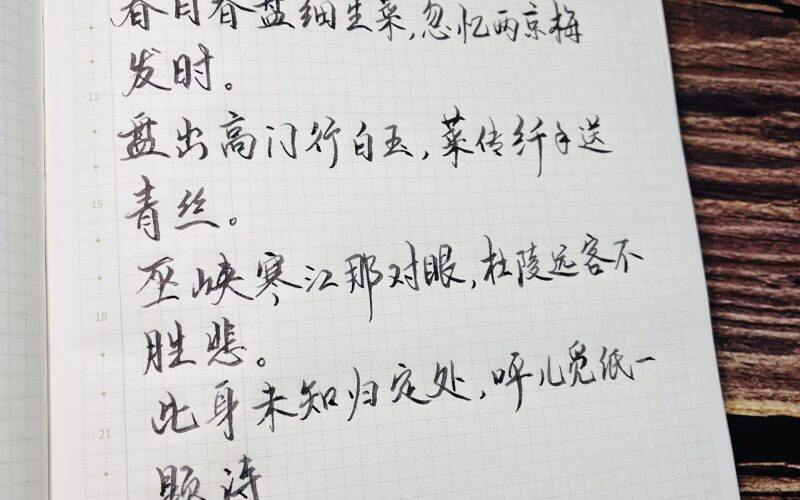 春日春盘细生菜,忽忆两京梅
发时。
12
盘出高门行白玉,菜传纤手送
青丝。
15
巫峡寒江那对眼,杜陵远客不
胜悲。
18
此身未知归定处,呼儿觅纸一
21
题诗